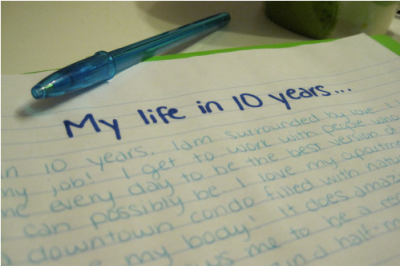 My life in 10 years...
in 10 years. I am surrounded by love. I
my job! I get to work with people who
me every day to be the best version of
I can possibly be I love my apartment
downtown condo filled with natur
my body! It does amaz
me to be a re
in a half-m